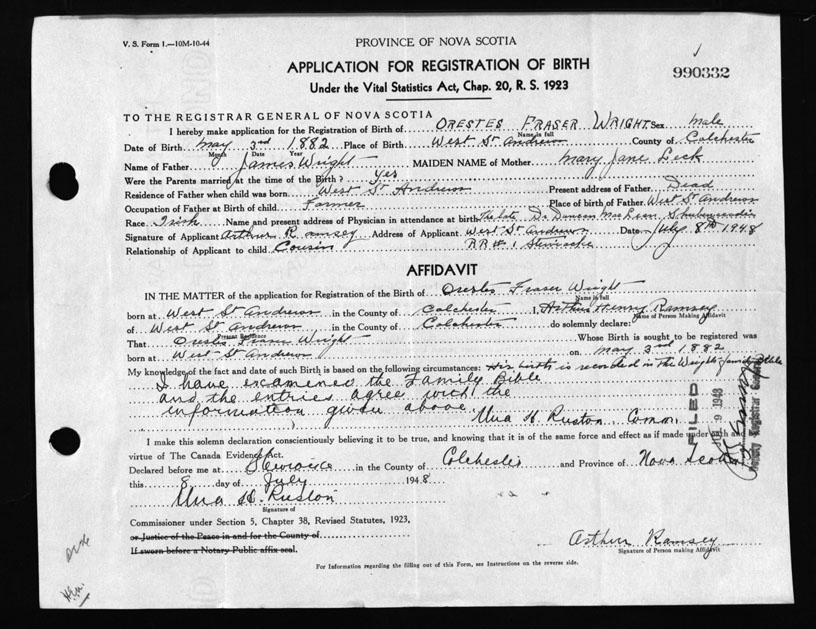 V. S. Form 1.—10M-10-44
PROVINCE OF NOVA SCOTIA
APPLICATION FOR REGISTRATION OF BIRTH
990332
Under the Vital Statistics Act, Chap. 20, R. S. 1923
TO THE REGISTRAR GENERAL OF NOVA SCOTIA
I hereby make application for the Registration of Birth of ORESTES FRASER WRIGHT Sex Male
Name in full
Date of Birth May 3rd 1882 Place of Birth West St Andrews County of Colchester
Month Date Year
Name of Father James Wright MAIDEN NAME of Mother Mary Jane Leck
Were the Parents married at the time of the Birth? Yes
Residence of Father when child was born West St Andrews Present address of Father Dead
Occupation of Father at Birth of child Farmer Place of birth of Father West St Andrews
Race Irish Name and present address of Physician in attendance at birth The late Dr Duncan McLean Shubenacadie
Signature of Applicant Arthur Ramsey Address of Applicant West St Andrews Date July 8th 1948
Relationship of Applicant to child Cousin RR # 1 Stewiacke
AFFIDAVIT
IN THE MATTER of the application for Registration of the Birth of Orestes Fraser Wright
Name in full
born at West St Andrews in the County of Colchester I, Arthur Henry Ramsey
Name of Person Making Affidavit
of West St Andrews in the County of Colchester do solemnly declare:
Present Residence
That Orestes Fraser Wright Whose Birth is sought to be registered was
born at West St Andrews on May 3rd 1882
My knowledge of the fact and date of such Birth is based on the following circumstances: His birth is recorded in the Wright family Bible
I have examined the Family Bible
and the entries agree with the
information given above. Una H. Ruston Comm.
FILED
9 1948
I make this solemn declaration conscientiously believing it to be true, and knowing that it is of the same force and effect as if made under oath and
virtue of The Canada Evidence Act.
Declared before me at Stewiacke in the County of Colchester and Province of Nova Scotia
this 8 day of July 1948
Una H. Ruston
Signature of
Commissioner under Section 5, Chapter 38, Revised Statutes, 1923,
or Justice of the Peace in and for the County of
If sworn before a Notary Public affix seal.
Arthur Ramsey
Signature of Person making Affidavit
For Information regarding the filling out of this Form, see Instructions on the reverse side.